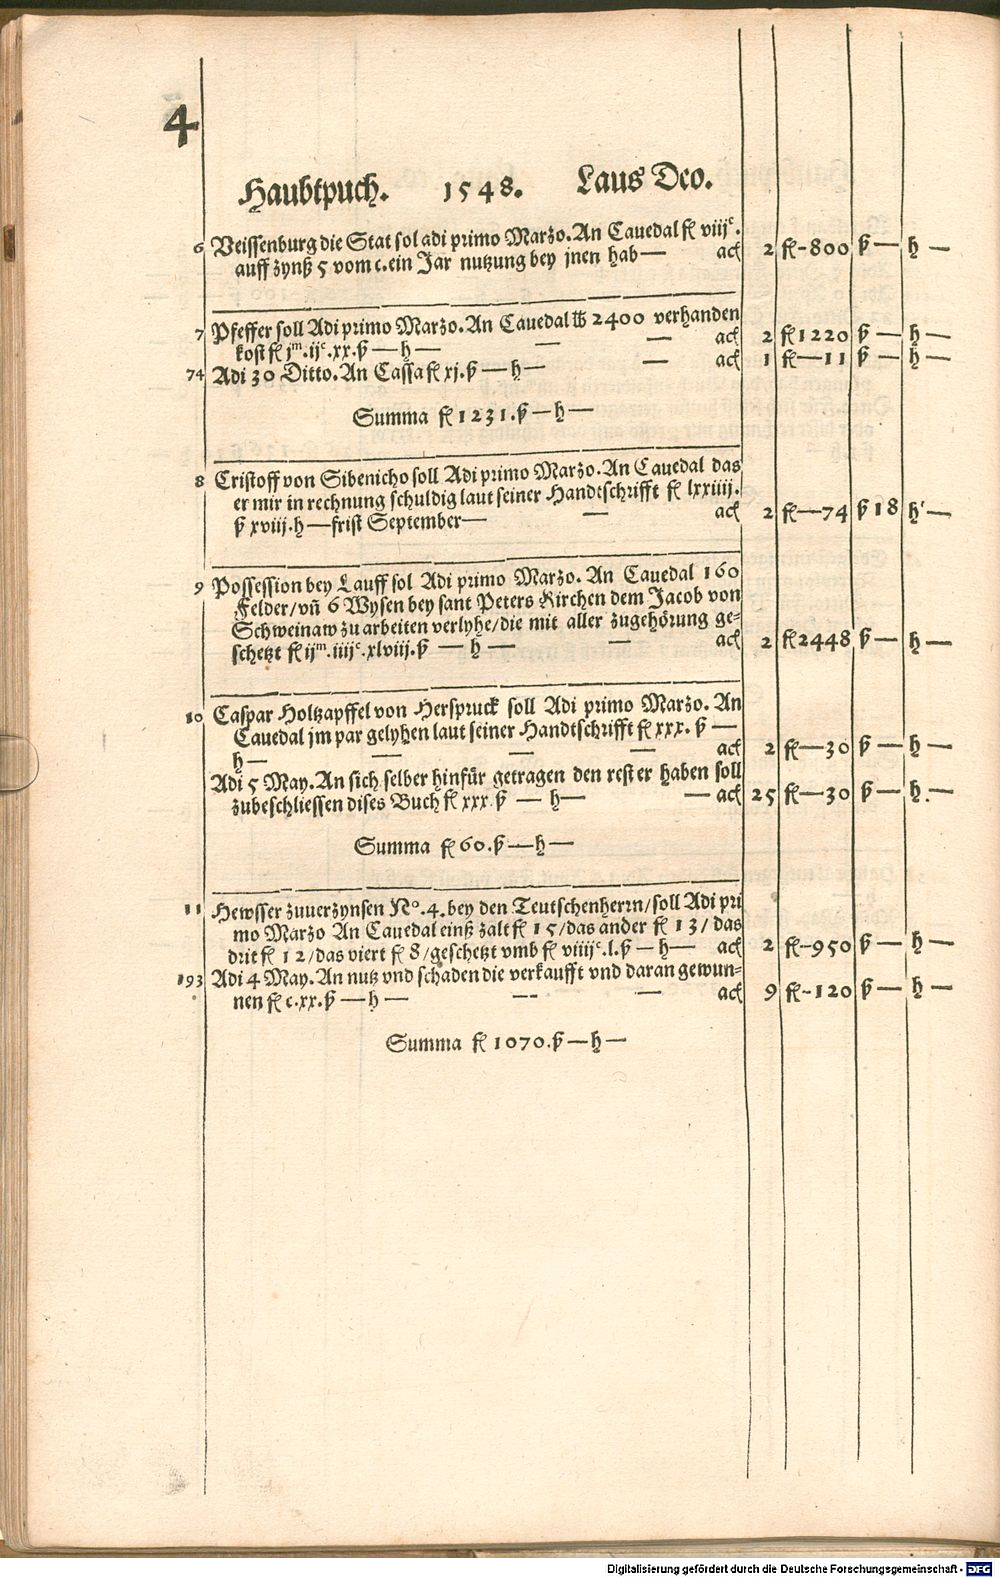 4
Haubtpuch. 1548. Laus Deo.
6 Veissenburg die Stat sol adi primo Marzo. An Cauedal fl viijᶜ.
auff zynß 5 vom c. ein Jar nutzung bey jnen hab— acℓ 2 fl-800 ß — h —
7 Pfeffer soll Adi primo Marzo. An Cauedal ℔ 2400 verhanden
kost fl jᵐ.ijᶜ.xx.ß — h — — — acℓ 2 fl 1220 ß — h —
74 Adi 30 Ditto. An Cassa fl xj.ß — h — — acℓ 1 fl—11 ß — h —
Summa fl 1231.ß — h —
8 Cristoff von Sibenicho soll Adi primo Marzo. An Cauedal das
er mir in rechnung schuldig laut seiner Handtschrifft fl lxxiiij.
ß xviij.h — frist September — — acℓ 2 fl—74 ß 18 h —
9 Possession bey Lauff sol Adi primo Marzo. An Cauedal 160
Felder/vñ 6 Wysen bey sant Peters Kirchen dem Jacob von
Schweinaw zu arbeiten verlyhe/die mit aller zugehörung ge-
schetzt fl ijᵐ.iiijᶜ.xlviij.ß — h — — acℓ 2 fl 2448 ß — h —
10 Caspar Holtzapffel von Herspruck soll Adi primo Marzo. An
Cauedal jm par gelyhen laut seiner Handtschrifft fl xxx. ß —
h — — — — acℓ 2 fl—30 ß — h —
Adi 5 May. An sich selber hinfür getragen den rest er haben soll
zubeschliessen dises Buch fl xxx ß — h — — acℓ 25 fl—30 ß — h. —
Summa fl 60.ß — h —
11 Hewsser zuuerzynsen Nº.4. bey den Teutschenherrn/soll Adi pri
mo Marzo An Cauedal einß zalt fl 15/das ander fl 13/das
drit fl 12/das viert fl 8/geschetzt vmb fl viiijᶜ.l.ß — h — acℓ 2 fl-950 ß — h —
193 Adi 4 May. An nutz vnd schaden die verkaufft vnd daran gewun-
nen fl c.xx.ß — h — — — acℓ 9 fl-120 ß — h —
Summa fl 1070.ß — h —
Digitalisierung gefördert durch die Deutsche Forschungsgemeinschaft - DFG